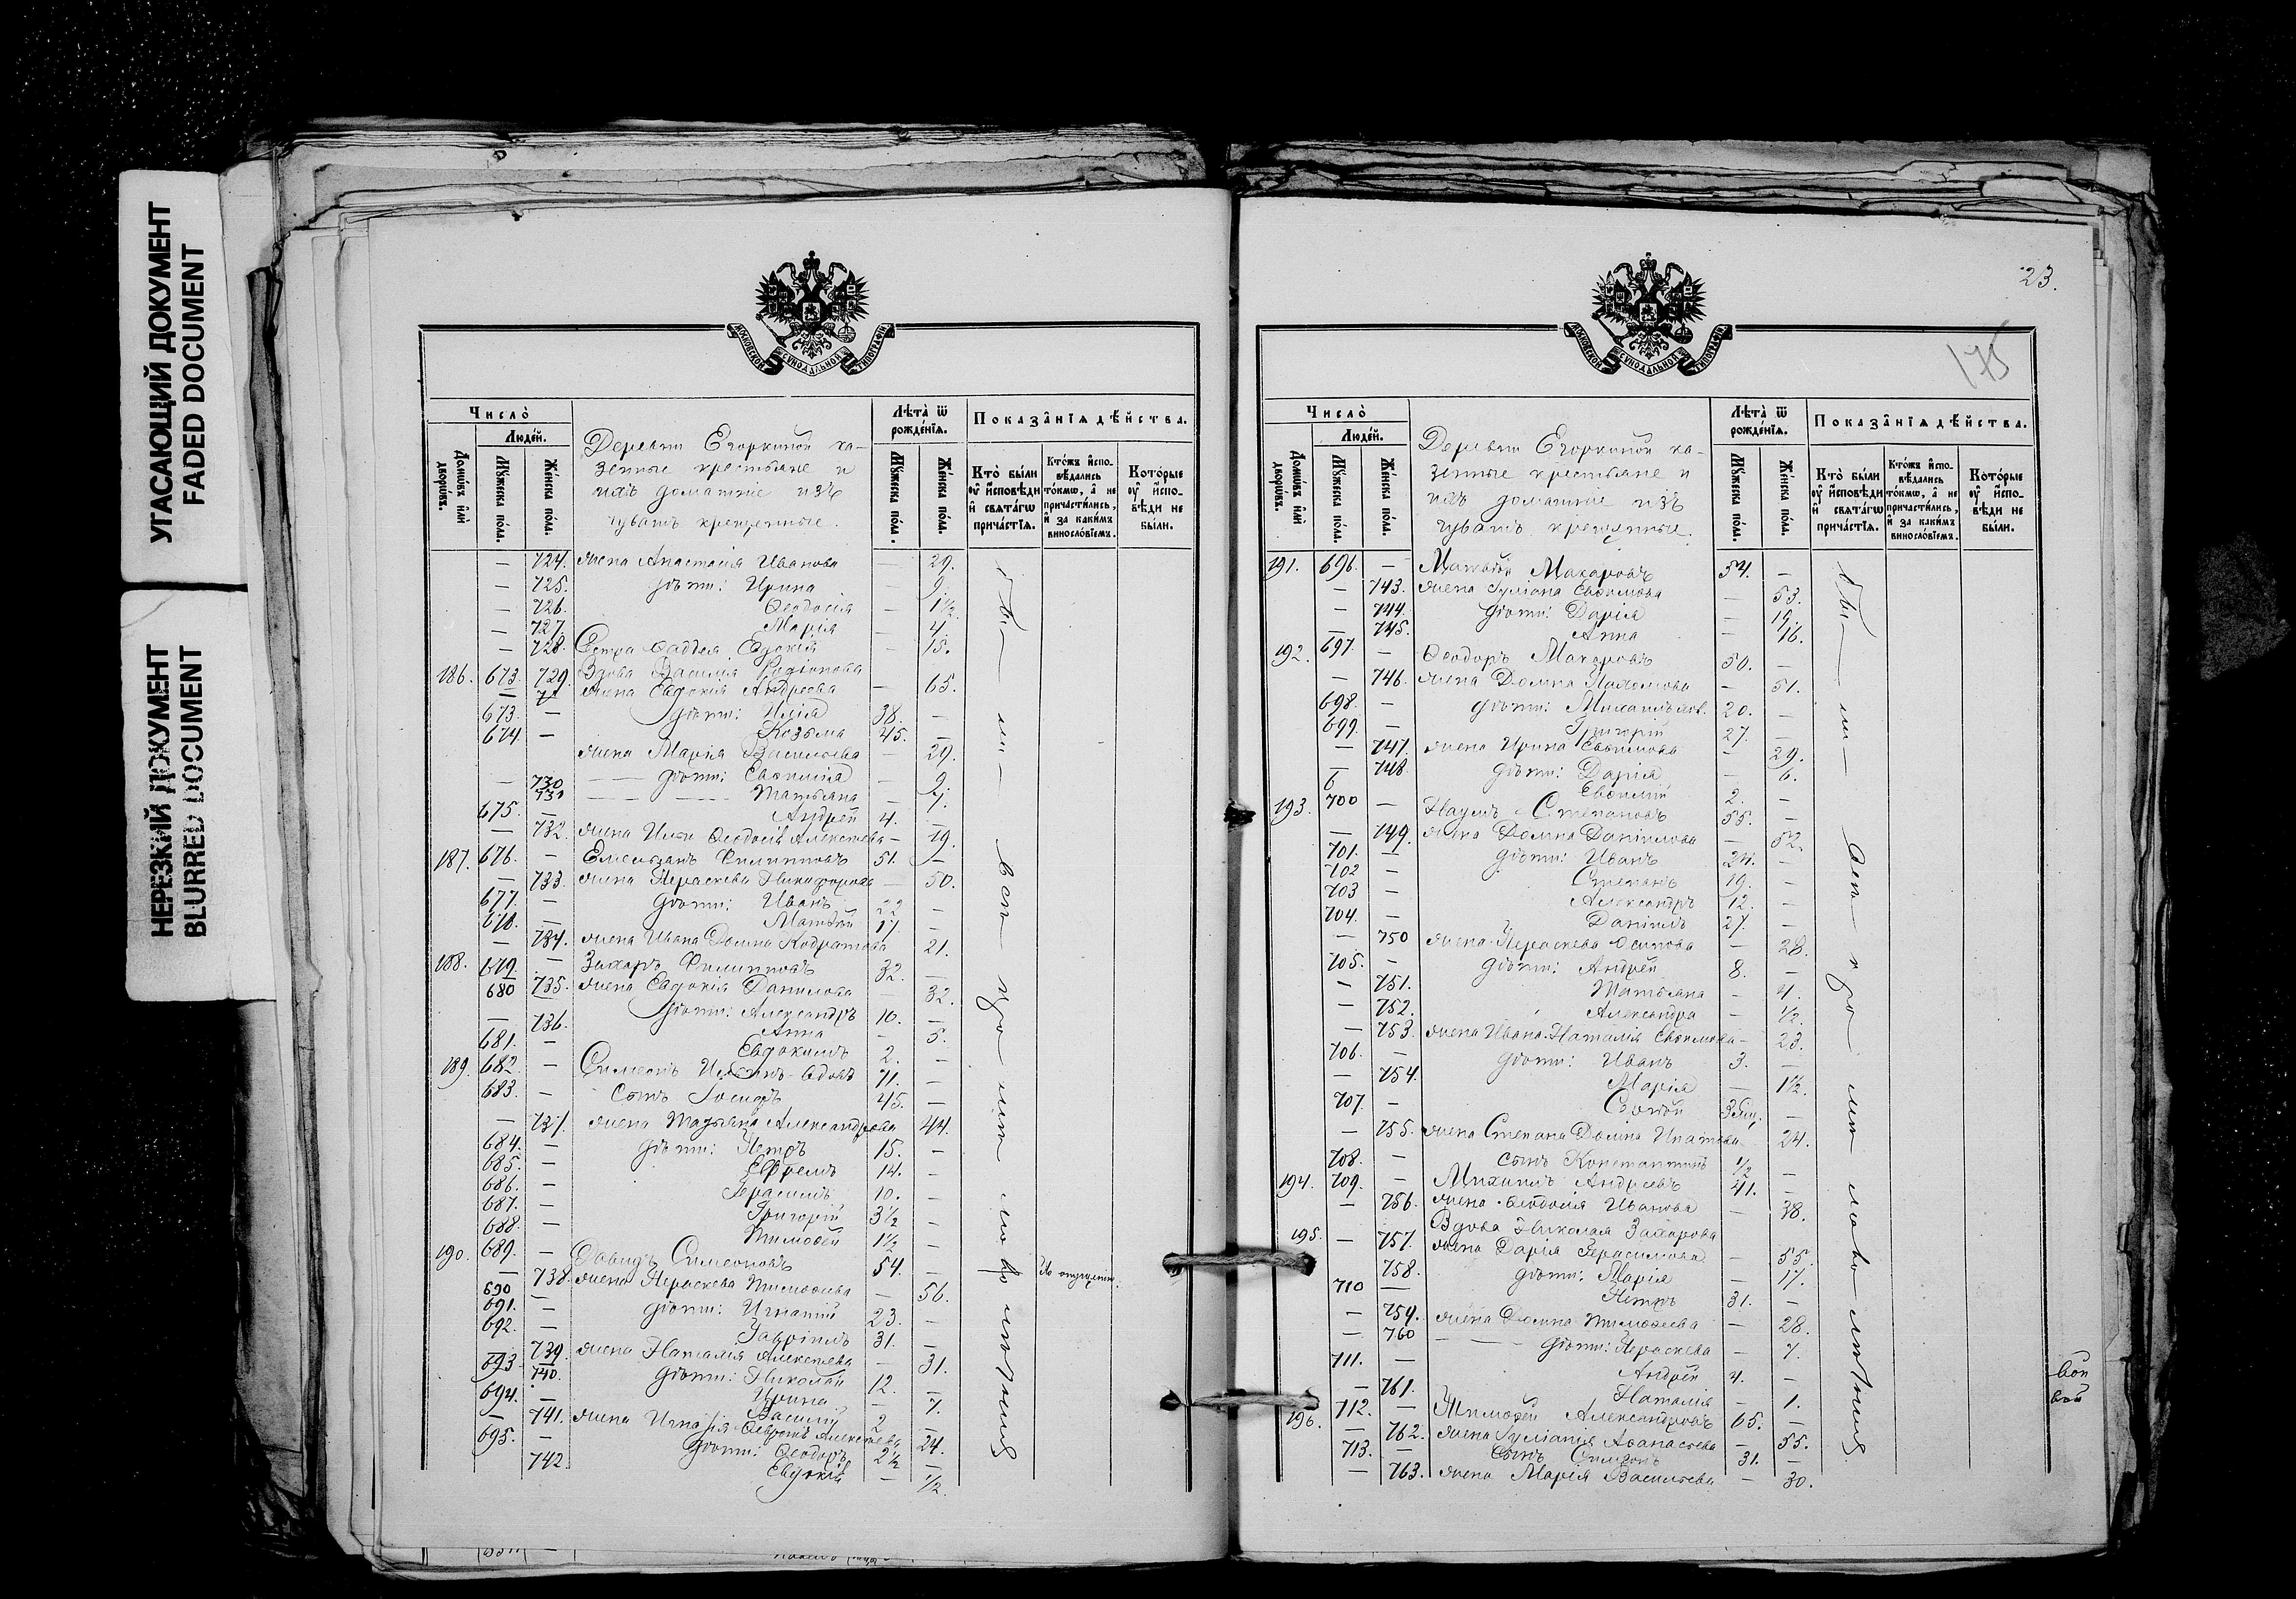 УГАСАЮЩИЙ ДОКУМЕНТ
FADED DOCUMENT
НЕРЕЗКИЙ ДОКУМЕНТ
BLURRED DOCUMENT
МОСКОВСКОЙ СѴНОДАЛЬНОЙ ТИПОГРАФІИ
Число̀
Люде́й.
Домѡ́въ и҆лѝ дворѡ́въ.
Мꙋ́жеска по́ла.
Же́нска по́ла.
Деревни Егоркиной ка-
зенные крестьяне и
ихъ домашніе изъ
чувашъ крещенные.
Лѣ́та ѿ рожде́нїѧ.
Мꙋ́жеска по́ла.
Же́нска по́ла.
Показа̑нїѧ дѣ́йства.
Кто̀ бы́ли ᲂу҆ и҆сповѣди и҆ свѧта́гѡ прича́стїѧ.
Кто́жъ и҆спо-вѣдались то́кмѡ, а҆ не причасти́лись, и҆ за каки́мъ винослові́емъ.
Кото́рые ᲂу҆ и҆спо-вѣди не бы́ли.
— 724. жена Анастасія Иванова — 29.
— 725. дѣти: Ирина 9.
— 726. Ѳеодосія — 1½
— 727. Марія — 4.
— 728. Сестра Фаддея Евдокія — 15.
186. 673. 729. Вдова Василія Родіонова
жена Евдокія Андреева — 65.
673. — дѣти: Илія 38. —
674. — Козьма 45. —
жена Марія Васильева — 29.
— 730 дѣти: Евѳимія — 9.
731 Татьяна — 7.
675. — Андрей 4. —
— 732. жена Иліи Ѳеодосія Алексѣева — 19.
187. 676. — Емельянъ Филипповъ 51. —
— 733. жена Параскева Никифорова — 50.
677. — дѣти: Иванъ 22 —
678. — Матвѣй 17. —
— 734. жена Ивана Домна Кодратова 21.
188. 679. — Захаръ Филипповъ 32. —
680 735. жена Евдокія Данилова — 32.
дѣти: Александръ 10. —
— 736. Анна — 5.
681. — Евдокимъ 2. —
189. 682. — Симеонъ вдовъ 71. —
683. — Сынъ 45. —
— 737. жена Татьяна Александрова 44.
684. — дѣти: Петръ 15. —
685. — Ефремъ 14. —
686. — Герасимъ 10. —
687. — Григорій 3½ —
688. — Тимоѳей 1½ —
190. 689. — Давидъ Симеоновъ 54. —
— 738. жена Параскева Тимоѳеева — 56.
690 — дѣти: Игнатій 23. —
691. —
692. — Гавріилъ 31. —
739. жена Наталія Алексѣева — 31.
693. 740. дѣти: Николай 12. —
694. — Ирина — 7.
Василій 2 —
— 741. жена Игнатія Алексѣева 24.
695. — дѣти: Ѳеодоръ 2½ —
742. Евдокія — ½
23.
175
МОСКОВСКОЙ СѴНОДАЛЬНОЙ ТИПОГРАФІИ
Число̀
Люде́й.
Домѡ́въ и҆лѝ дворѡ́въ.
Мꙋ́жеска по́ла.
Же́нска по́ла.
Деревни Егоркиной ка-
зенные крестьяне и
ихъ домашніе изъ
чувашъ крещенные.
Лѣ́та ѿ рожде́нїѧ.
Мꙋ́жеска по́ла.
Же́нска по́ла.
Показа̑нїѧ дѣ́йства.
Кто̀ бы́ли ᲂу҆ и҆сповѣди и҆ свѧта́гѡ прича́стїѧ.
Кто́жъ и҆спо-вѣдались то́кмѡ, а҆ не причасти́лись, и҆ за каки́мъ винослові́емъ.
Кото́рые ᲂу҆ и҆спо-вѣди не бы́ли.
191. 696. — Матвѣй Макаровъ 54. —
— 743. жена Іуліана Евѳимова — 53.
— 744. дѣти: Дарія — 19.
— 745. Анна — 16.
192. 697. — Ѳеодоръ Макаровъ 50. —
— 746. жена Домна Пахомова — 51.
698. — дѣти: 20. —
699. — Григорій 27. —
— 747. жена Ирина Евѳимова — 29.
— 748. дѣти: Дарія — 6.
Евѳимій 2. —
193. 700 — Наумъ Степановъ 55. —
— 749. жена Домна Даніилова — 52.
701. — дѣти: Иванъ 24. —
702 — Степанъ 19. —
703 — Александръ 12. —
704. — Даніилъ 27. —
— 750 жена Параскева Осипова — 28.
705. — дѣти: Андрей 8. —
— 751. Татьяна — 4.
— 752. Александра — ½
— 753. жена Ивана Наталія Евѳимова — 23.
706. — дѣти: Иванъ 3. —
— 754. Марія — 1½
707. — —
— 755. жена Степана Домна Ипатова 24.
708. — сынъ Константинъ ½ —
194. 709. — Михаилъ Андреевъ 41. —
— 756. жена Ѳеодосія Иванова — 38.
195. — 757. Вдова Николая Захарова
жена Дарія Герасимова — 55.
758. дѣти: Марія — 17.
710 — Петръ 31. —
— 759. жена Домна Тимоѳеева — 28.
— 760 дѣти: Параскева — 7.
711. — Андрей 4. —
— 761. Наталія — 1.
196. 712. — Тимоѳей Александровъ 65. —
— 762. жена Іуліанія Аѳанасьева — 55.
713. — Сынъ Симеонъ 31. —
— 763. жена Марія Васильева — 30.